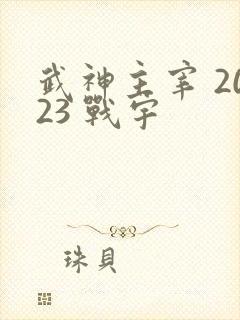 武神主宰 20
23 戰宇
珠貝